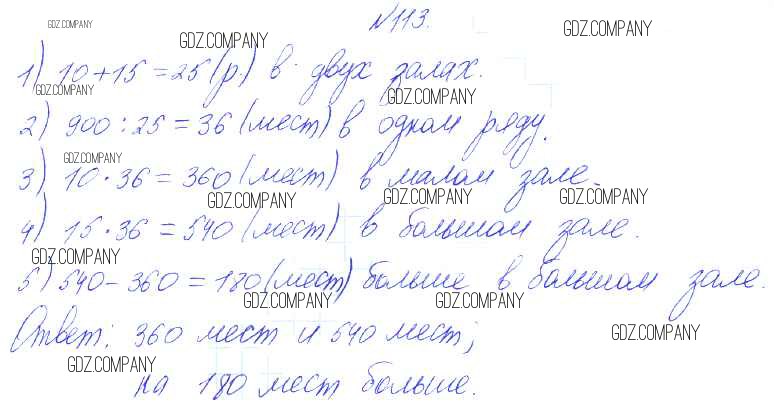 №113.
1) 10+15=25(р.) в двух залах.
2) 900:25=36(мест) в одном ряду.
3) 10·36=360(мест) в малом зале.
4) 15·36=540(мест) в большом зале.
5) 540-360=180(мест) больше в большом зале.
Ответ: 360 мест и 540 мест;
на 180 мест больше.
GDZ.COMPANY
GDZ.COMPANY
GDZ.COMPANY
GDZ.COMPANY
GDZ.COMPANY
GDZ.COMPANY
GDZ.COMPANY
GDZ.COMPANY
GDZ.COMPANY
GDZ.COMPANY
GDZ.COMPANY
GDZ.COMPANY
GDZ.COMPANY
GDZ.COMPANY